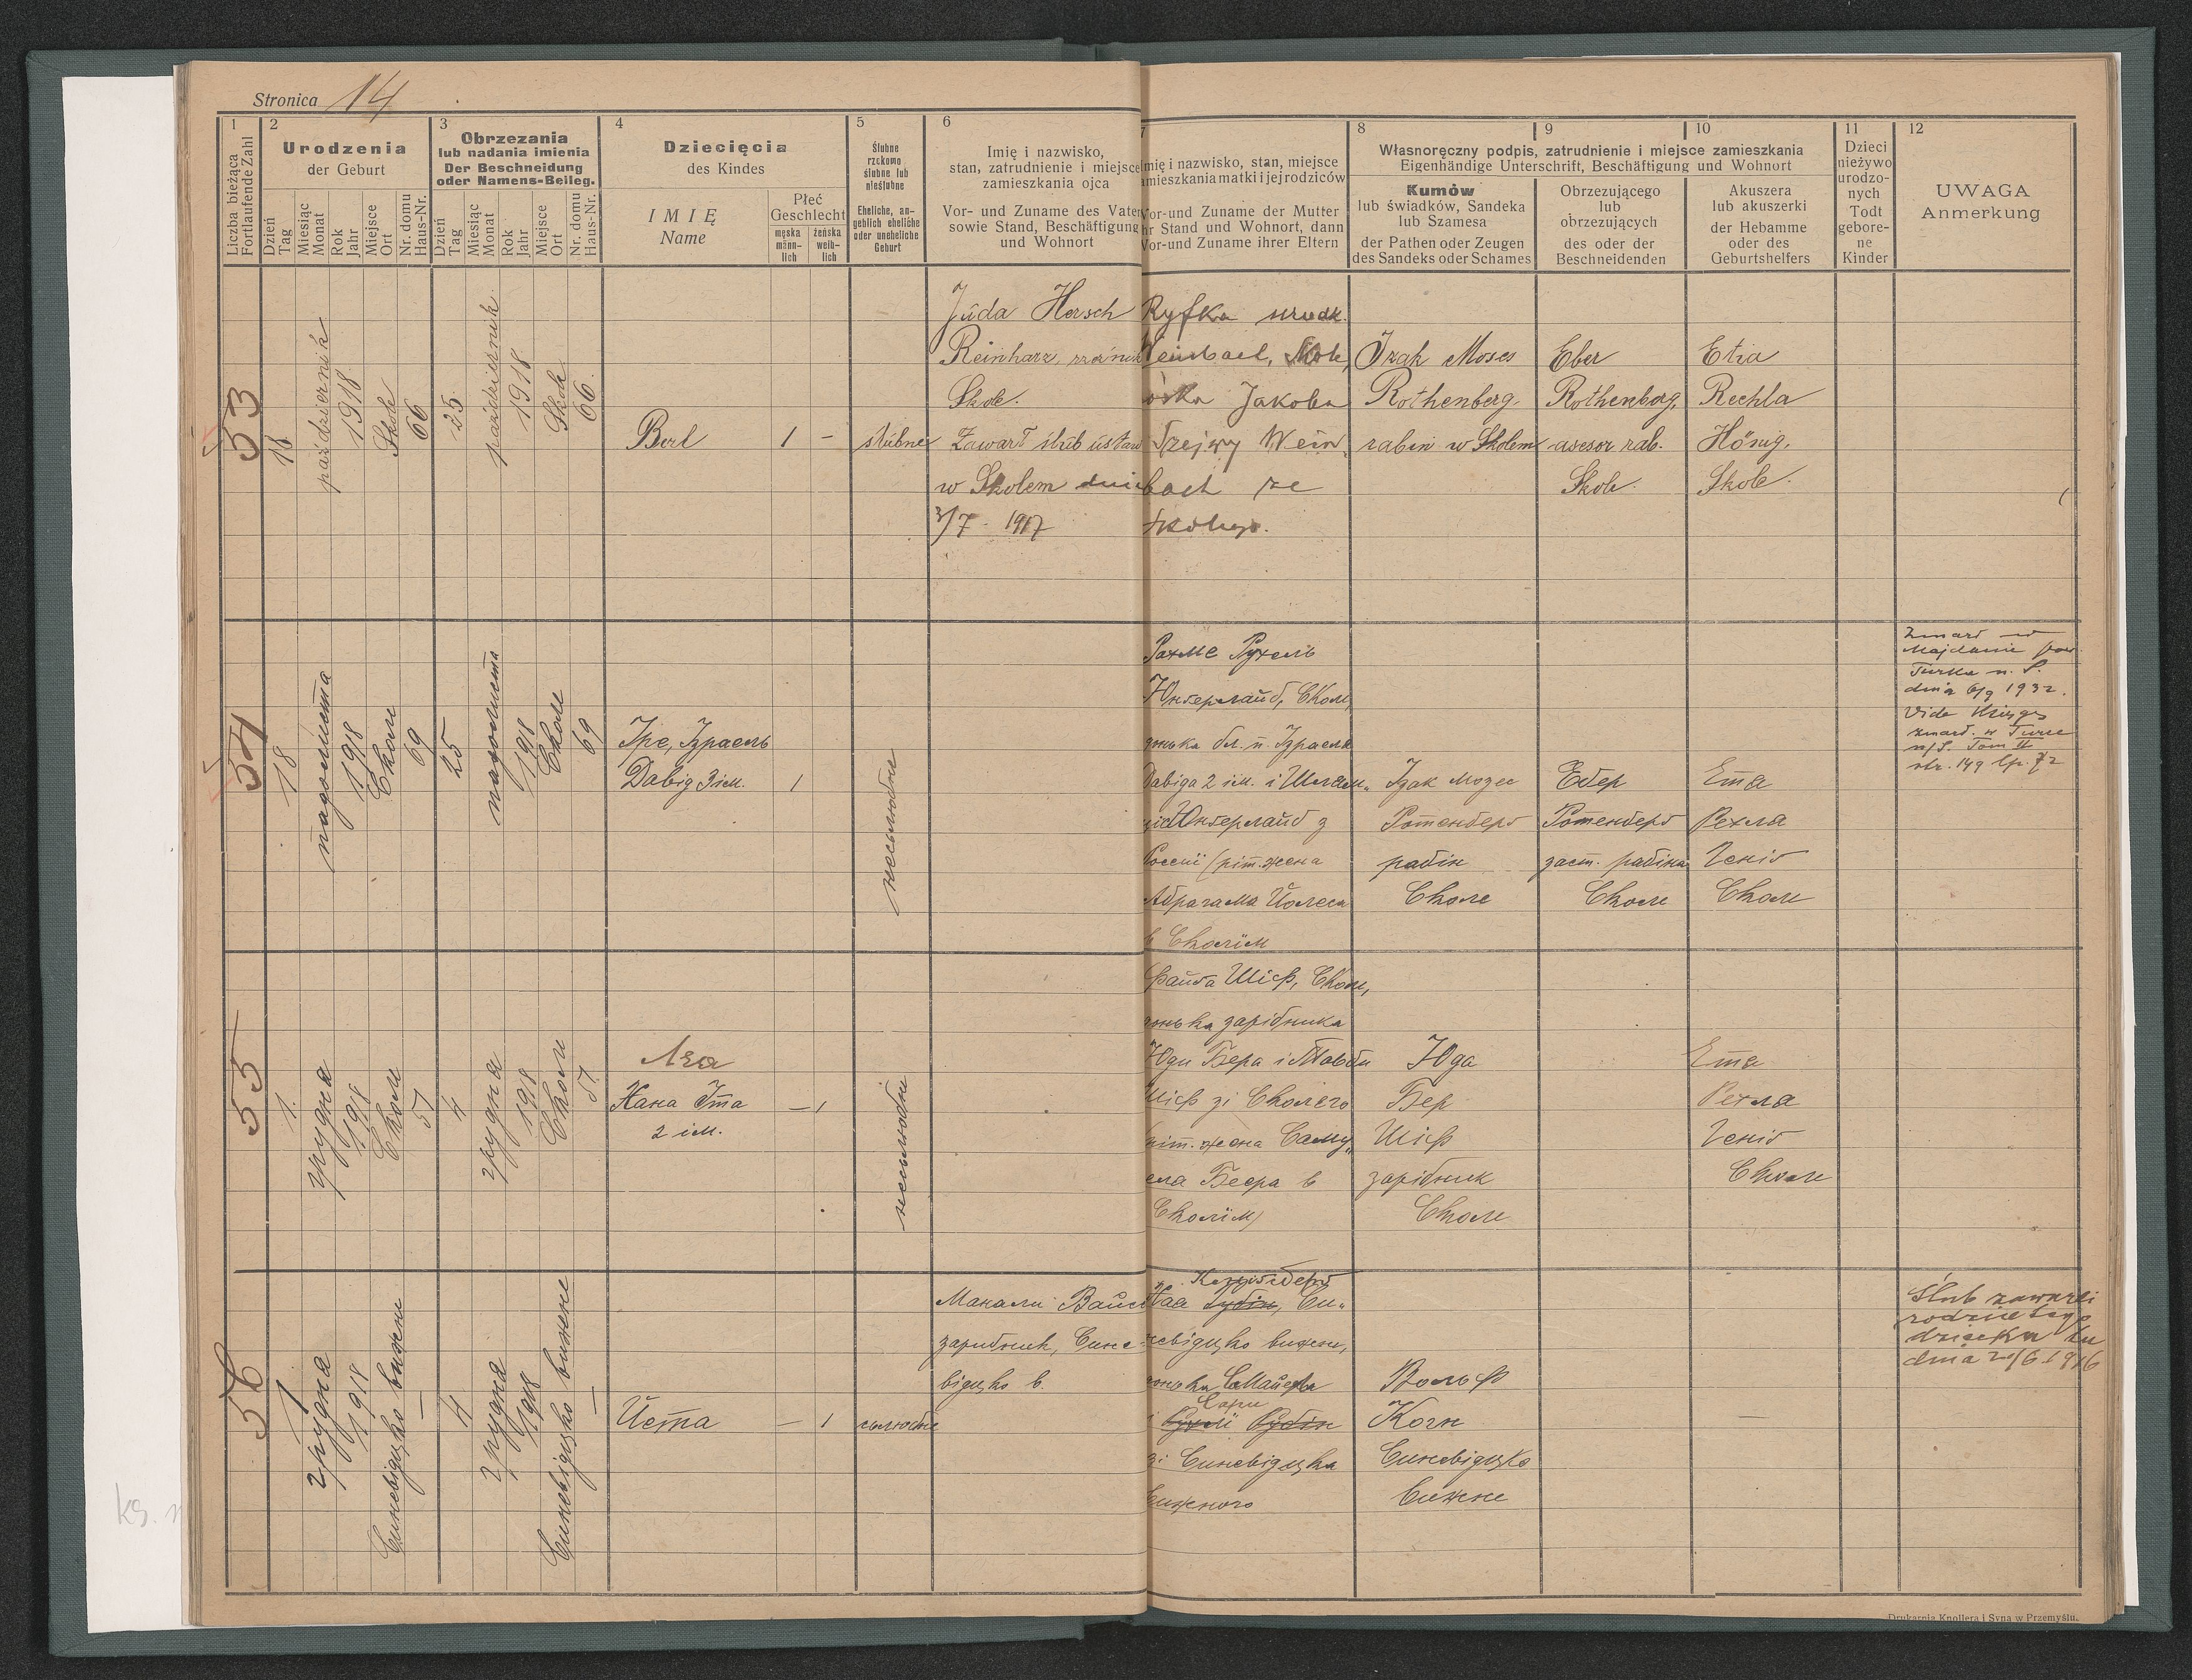 Stronica 14
1
Liczba bieżąca
Fortlaufende Zahl
2
Urodzenia
der Geburt
Dzień
Tag
Miesiąc
Monat
Rok
Jahr
Miejsce
Ort
Nr. domu
Haus-Nr.
3
Obrzezania
lub nadania imienia
Der Beschneidung
oder Namens-Beileg.
Dzień
Tag
Miesiąc
Monat
Rok
Jahr
Miejsce
Ort
Nr. domu
Haus-Nr.
4
Dziecięcia
des Kindes
IMIĘ
Name
Płeć
Geschlecht
męska
männ-
lich
żeńska
weib-
lich
5
Ślubne
rzekomo
ślubne lub
nieślubne
Eheliche, an-
geblich eheliche
oder uneheliche
Geburt
6
Imię i nazwisko,
stan, zatrudnienie i miejsce
zamieszkania ojca
Vor- und Zuname des Vaters
sowie Stand, Beschäftigung
und Wohnort
7
Imię i nazwisko, stan, miejsce
zamieszkania matki i jej rodziców
Vor- und Zuname der Mutter
ihr Stand und Wohnort, dann
Vor- und Zuname ihrer Eltern
Własnoręczny podpis, zatrudnienie i miejsce zamieszkania
Eigenhändige Unterschrift, Beschäftigung und Wohnort
8
Kumów
lub świadków, Sandeka
lub Szamesa
der Pathen oder Zeugen
des Sandeks oder Schames
9
Obrzezującego
lub
obrzezujących
des oder der
Beschneidenden
10
Akuszera
lub akuszerki
der Hebamme
oder des
Geburtshelfers
11
Dzieci
nieżywo
urodzo-
nych
Todt
gebore-
ne
Kinder
12
UWAGA
Anmerkung
53
18
październik
1918
Skole
66
25
październik
1918
Skole
66
Berl
1 -
ślubne
Juda Hersch
Reinharz,
Skole.
Zawarł ślub
w Skolem dnia
3/7 - 1917
Ryfka
Skole,
córka Jakoba
Wein
bach ze
Skolego.
Izak Moses
Rothenberg
rabin w Skolem
Eber
Rothenberg,
asesor rab.
Skole.
Etia
Rechla
Hönig,
Skole.
54
18
падолиста
1918
Сколє
69
25
падолиста
1918
Сколє
69
Іре, Ізраель
Давід 3 ім.
1
несьлюбне
Рахме Рухель
Юнґерлайб, Сколє,
донька бл. п. Ізраеля
Давіда 2 ім. і
Юнґерлайб з
Росиї (ріт. жена
Абрагама Йолеса
в Сколїм
Ізак Мозес
Ротенберґ
рабін
Сколє
Ебер
Ротенберґ
заст. рабіна
Сколє
Ета
Рехля
Геніґ
Сколє
Zmarł w
Majdanie pow.
Turka n. S.
dnia 6/9 1932.
Vide księga
zmarł. w Turce
n/S. Tom II
str. 149 lp. 72
55
1.
грудня
1918
Сколє
57
4
грудня
1918
Сколє
57
Лєа
Хана Іта
2 ім.
— 1
несьлюбне
Файґа Шіф, Сколє,
донька зарібника
Юди Бера і Тавби
Шіф зі Сколєго
ріт. жена Саму„
еля Беера в
Сколїм)
Юда
Бер
Шіф
зарібник
Сколє
Ета
Рехля
Геніґ
Сколє
56
1
грудня
1918
Синевідзко вижне
—
4
грудня
1918
Синевідзко вижне
—
Йета
— 1
сьлюбне
Манали Вайс
зарібник, Сине-
відзко в.
Рубін, Си„
невідзко вижне,
донька Майера
Сари
і Рухлї Рубін
зі Синевідзка
вижного
Вольф
Коги
Синевідзко
Вижне
—
Ślub zawarli
rodzice tego
dziecka tu
dnia 20/6 1916
Drukarnia Knollera i Syna w Przemyślu.